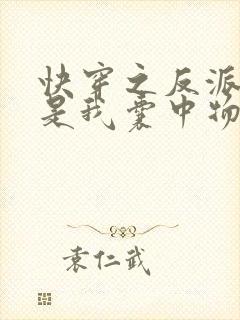 快穿之反派
是我囊中物
袁仁武